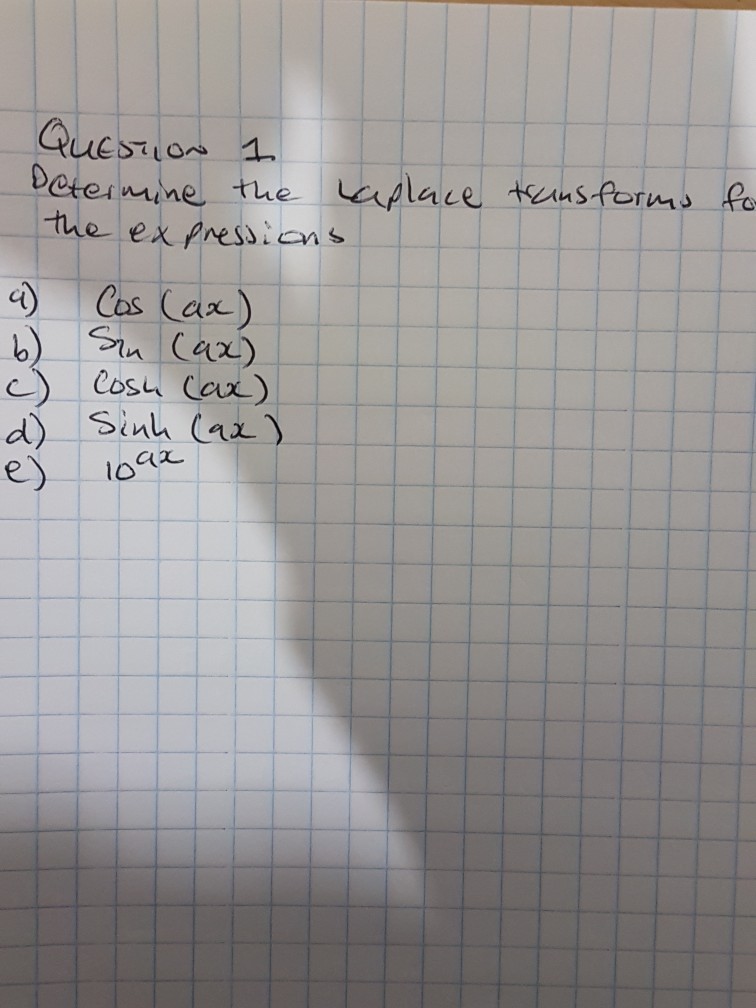 Question 1
Determine the Laplace transforms fo
the expressions
a) Cos (ax)
b) Sin (ax)
c) Cosh (ax)
d) Sinh (ax)
e) 10^ax